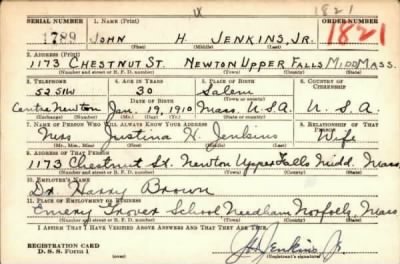 1821
SERIAL NUMBER 1. NAME (Print) ORDER NUMBER
1789 JOHN H. JENKINS, JR. 1821
(First) (Middle) (Last)
2. ADDRESS (Print)
1173 CHESTNUT ST. NEWTON UPPER FALLS MIDD MASS.
(Number and street or R. F. D. number) (Town) (County) (State)
3. TELEPHONE 4. AGE IN YEARS 5. PLACE OF BIRTH 6. COUNTRY OF CITIZENSHIP
5251W 30 Salem
DATE OF BIRTH (Town or county)
Centre Newton Jan. 19, 1910 Mass. U.S.A. U.S.A.
(Exchange) (Number) (Mo.) (Day) (Yr.) (State or country)
7. NAME OF PERSON WHO WILL ALWAYS KNOW YOUR ADDRESS 8. RELATIONSHIP OF THAT PERSON
Mrs Justina H. Jenkins Wife
(Mr., Mrs., Miss) (First) (Middle) (Last)
9. ADDRESS OF THAT PERSON
1173 Chestnut St. Newton Upper Falls Midd. Mass.
(Number and street or R. F. D. number) (Town) (County) (State)
10. EMPLOYER'S NAME
Dr. Harry Brown
11. PLACE OF EMPLOYMENT OR BUSINESS
Emery Grover School Needham Norfolk Mass
(Number and street or R. F. D. number) (Town) (County) (State)
I AFFIRM THAT I HAVE VERIFIED ABOVE ANSWERS AND THAT THEY ARE TRUE.
REGISTRATION CARD
D. S. S. Form 1
J H Jenkins Jr.
(Registrant's signature)